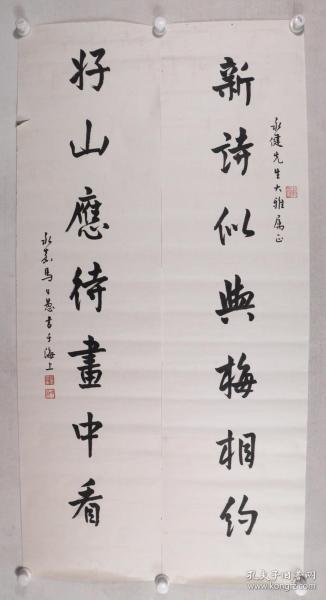 永健先生大雅属正
新詩似與梅相約
好山應待畫中看
永嘉馬公愚書于海上
孔夫子旧书网